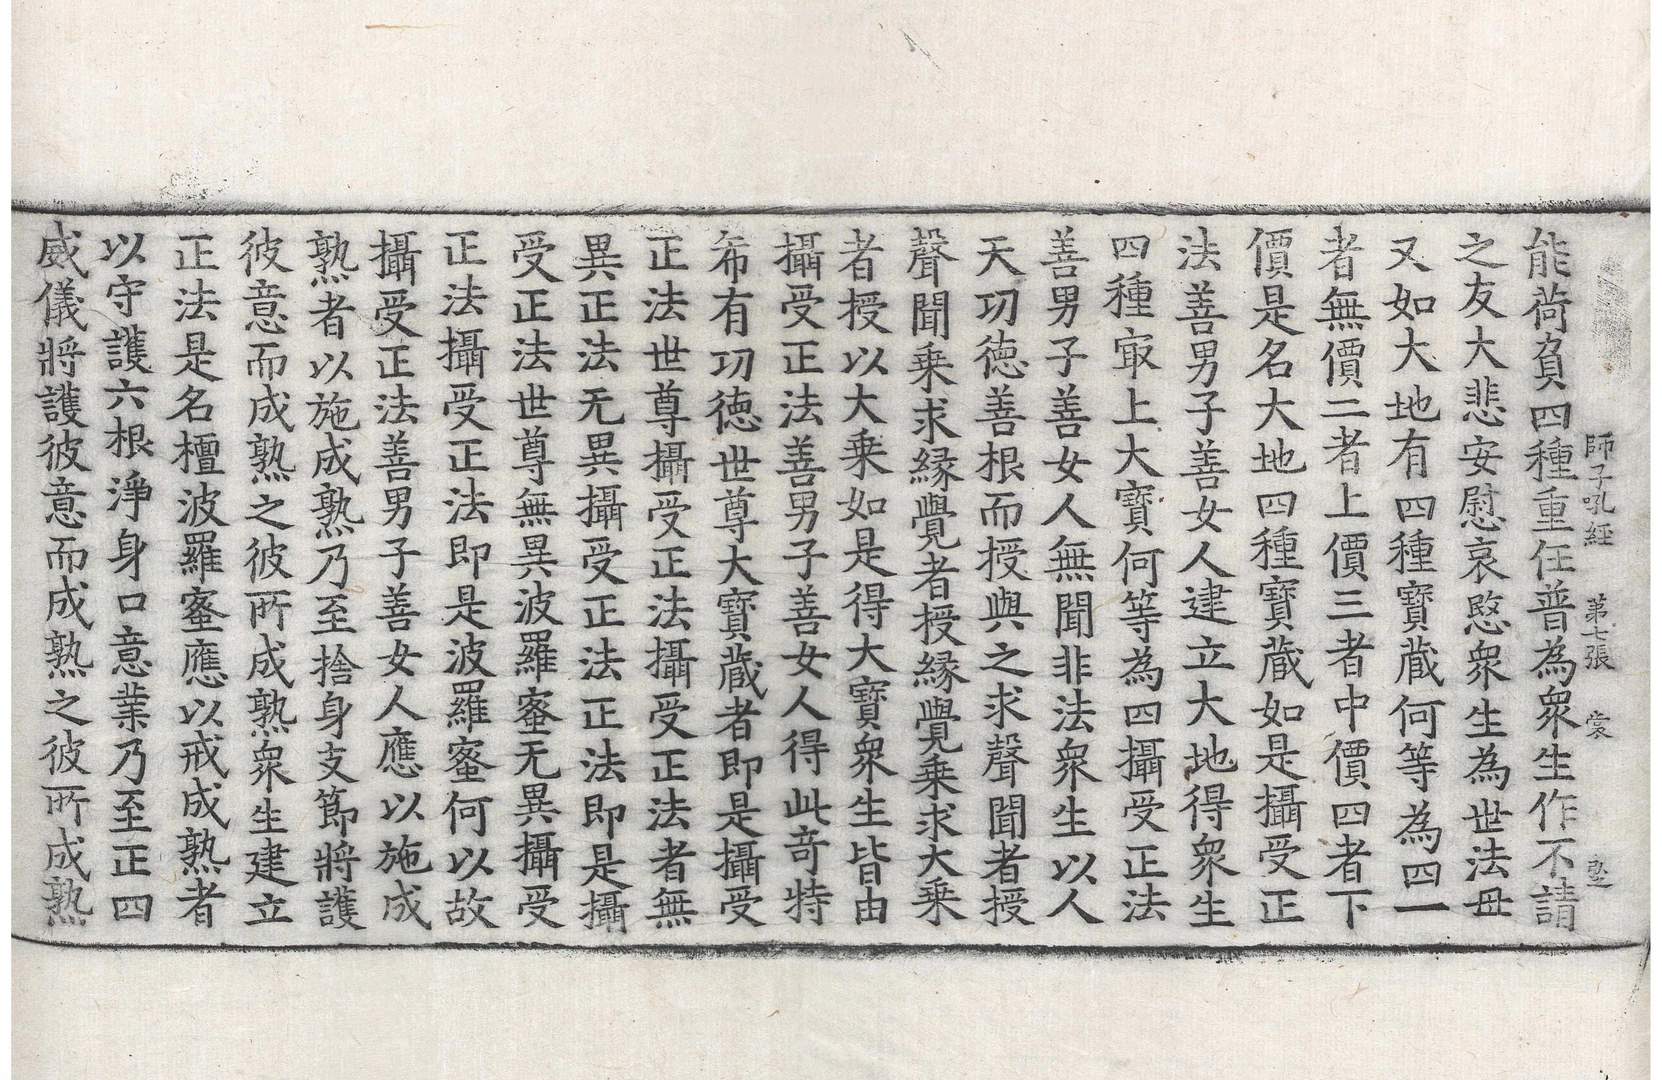 師子吼経 第七張 裳
能荷負四種重任普為衆生作不請
之友大悲安慰哀愍衆生為世法母
又如大地有四種寶蔵何等為四一
者無價二者上價三者中價四者下
價是名大地四種寶蔵如是攝受正
法善男子善女人建立大地得衆生
四種㝡上大寶何等為四攝受正法
善男子善女人無聞非法衆生以人
天功徳善根而授與之求聲聞者授
聲聞乗求縁覺者授縁覺乗求大乗
者授以大乗如是得大寶衆生皆由
攝受正法善男子善女人得此竒特
希有功徳世尊大寶蔵者即是攝受
正法世尊攝受正法攝受正法者無
異正法无異攝受正法正法即是攝
受正法世尊無異波羅蜜无異攝受
正法攝受正法即是波羅蜜何以故
攝受正法善男子善女人應以施成
熟者以施成熟乃至捨身支節將護
彼意而成熟之彼所成熟衆生建立
正法是名檀波羅蜜應以戒成熟者
以守護六根淨身口意業乃至正四
威儀將護彼意而成熟之彼所成熟